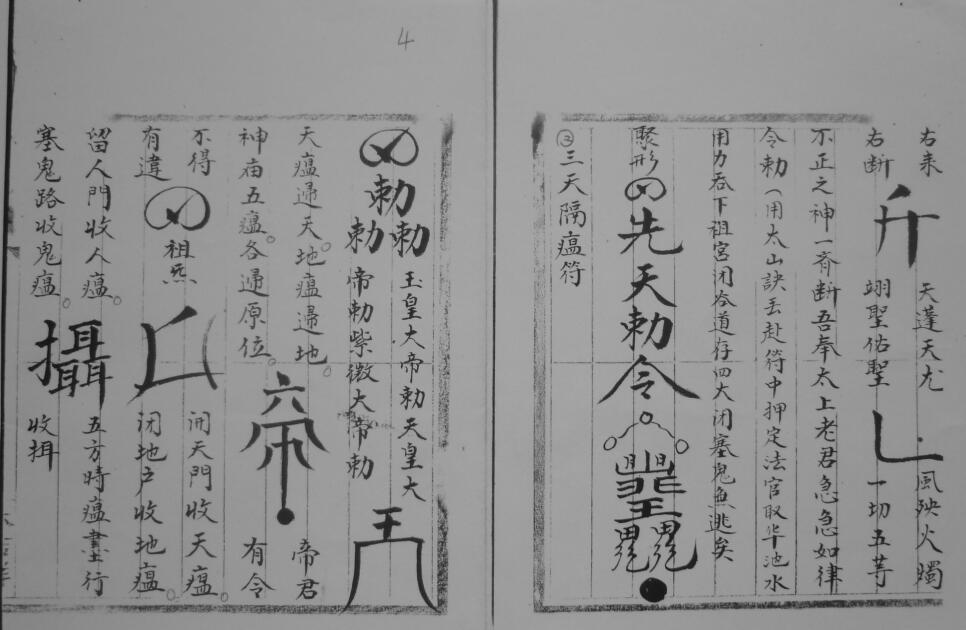 右来 天蓬天尤 風殃火燭
右断 斤 翊聖佑聖 一切五等
不正之神一齐断吾奉太上老君急急如律
令勅（用太山訣丟赴符中押定法官取华池水
用力吞下祖宫闭谷道存四大闭塞鬼無逃矣
聚形 先天勅令
③三天隔瘟符
4
勅勅勅 玉皇大帝勅天皇大
帝勅紫微大帝勅
天瘟歸天。地瘟歸地。 帝君
神庙五瘟。各歸原位。 有令
不得 祖炁 開天門收天瘟。
有違 闭地户收地瘟。
留人門收人瘟。 五方時瘟 行
塞鬼路收鬼瘟。 攝 收